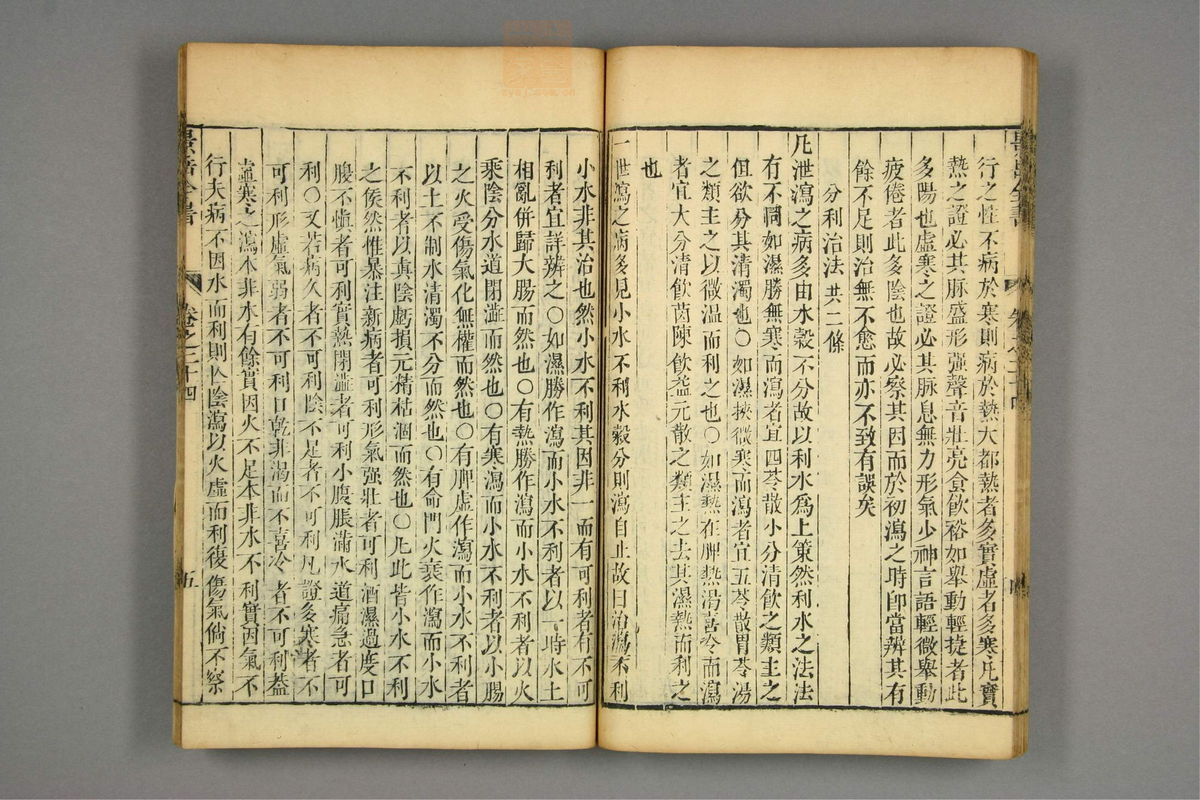 行之性不病於寒則病於熱大都熱者多實虛者多寒凡實
熱之證必其脉盛形强聲音壯亮食飲裕如舉動輕捷者此
多陽也虛寒之證必其脉息無力形氣少神言語輕微舉動
疲倦者此多陰也故必察其因而於初瀉之時即當辨其有
餘不足則治無不愈而亦不致有誤矣
分利治法 共二條
凡泄瀉之病多由水穀不分故以利水爲上策然利水之法法
有不同如濕勝無寒而瀉者宜四苓散小分清飲之類主之
但欲分其清濁也○如濕挾微寒而瀉者宜五苓散胃苓湯
之類主之以微温而利之也○如濕熱在脾熱渴喜冷而瀉
者宜大分清飲茵陳飲益元散之類主之去其濕熱而利之
也
一泄瀉之病多見小水不利水穀分則瀉自止故曰治瀉不利
小水非其治也然小水不利其因非一而有可利者有不可
利者宜詳辨之○如濕勝作瀉而小水不利者以一時水土
相亂併歸大腸而然也○有熱勝作瀉而小水不利者以火
乘陰分水道閉澁而然也○有寒瀉而小水不利者以小腸
之火受傷氣化無權而然也○有脾虛作瀉而小水不利者
以土不制水清濁不分而然也○有命門火衰作瀉而小水
不利者以真陰虧損元精枯涸而然也○凡此皆小水不利
之候然惟暴注新病者可利形氣强壯者可利酒濕過度口
腹不慎者可利實熱閉澁者可利小腹脹滿水道痛急者可
利○又若病久者不可利陰不足者不可利凡證多寒者不
可利形虛氣弱者不可利口乾非渴而不喜冷者不可利蓋
虛寒之瀉本非水有餘實因火不足本非水不利實因氣不
行夫病不因水而利則亡陰瀉以火虛而利復傷氣倘不察
景岳全書
卷之二十四
五